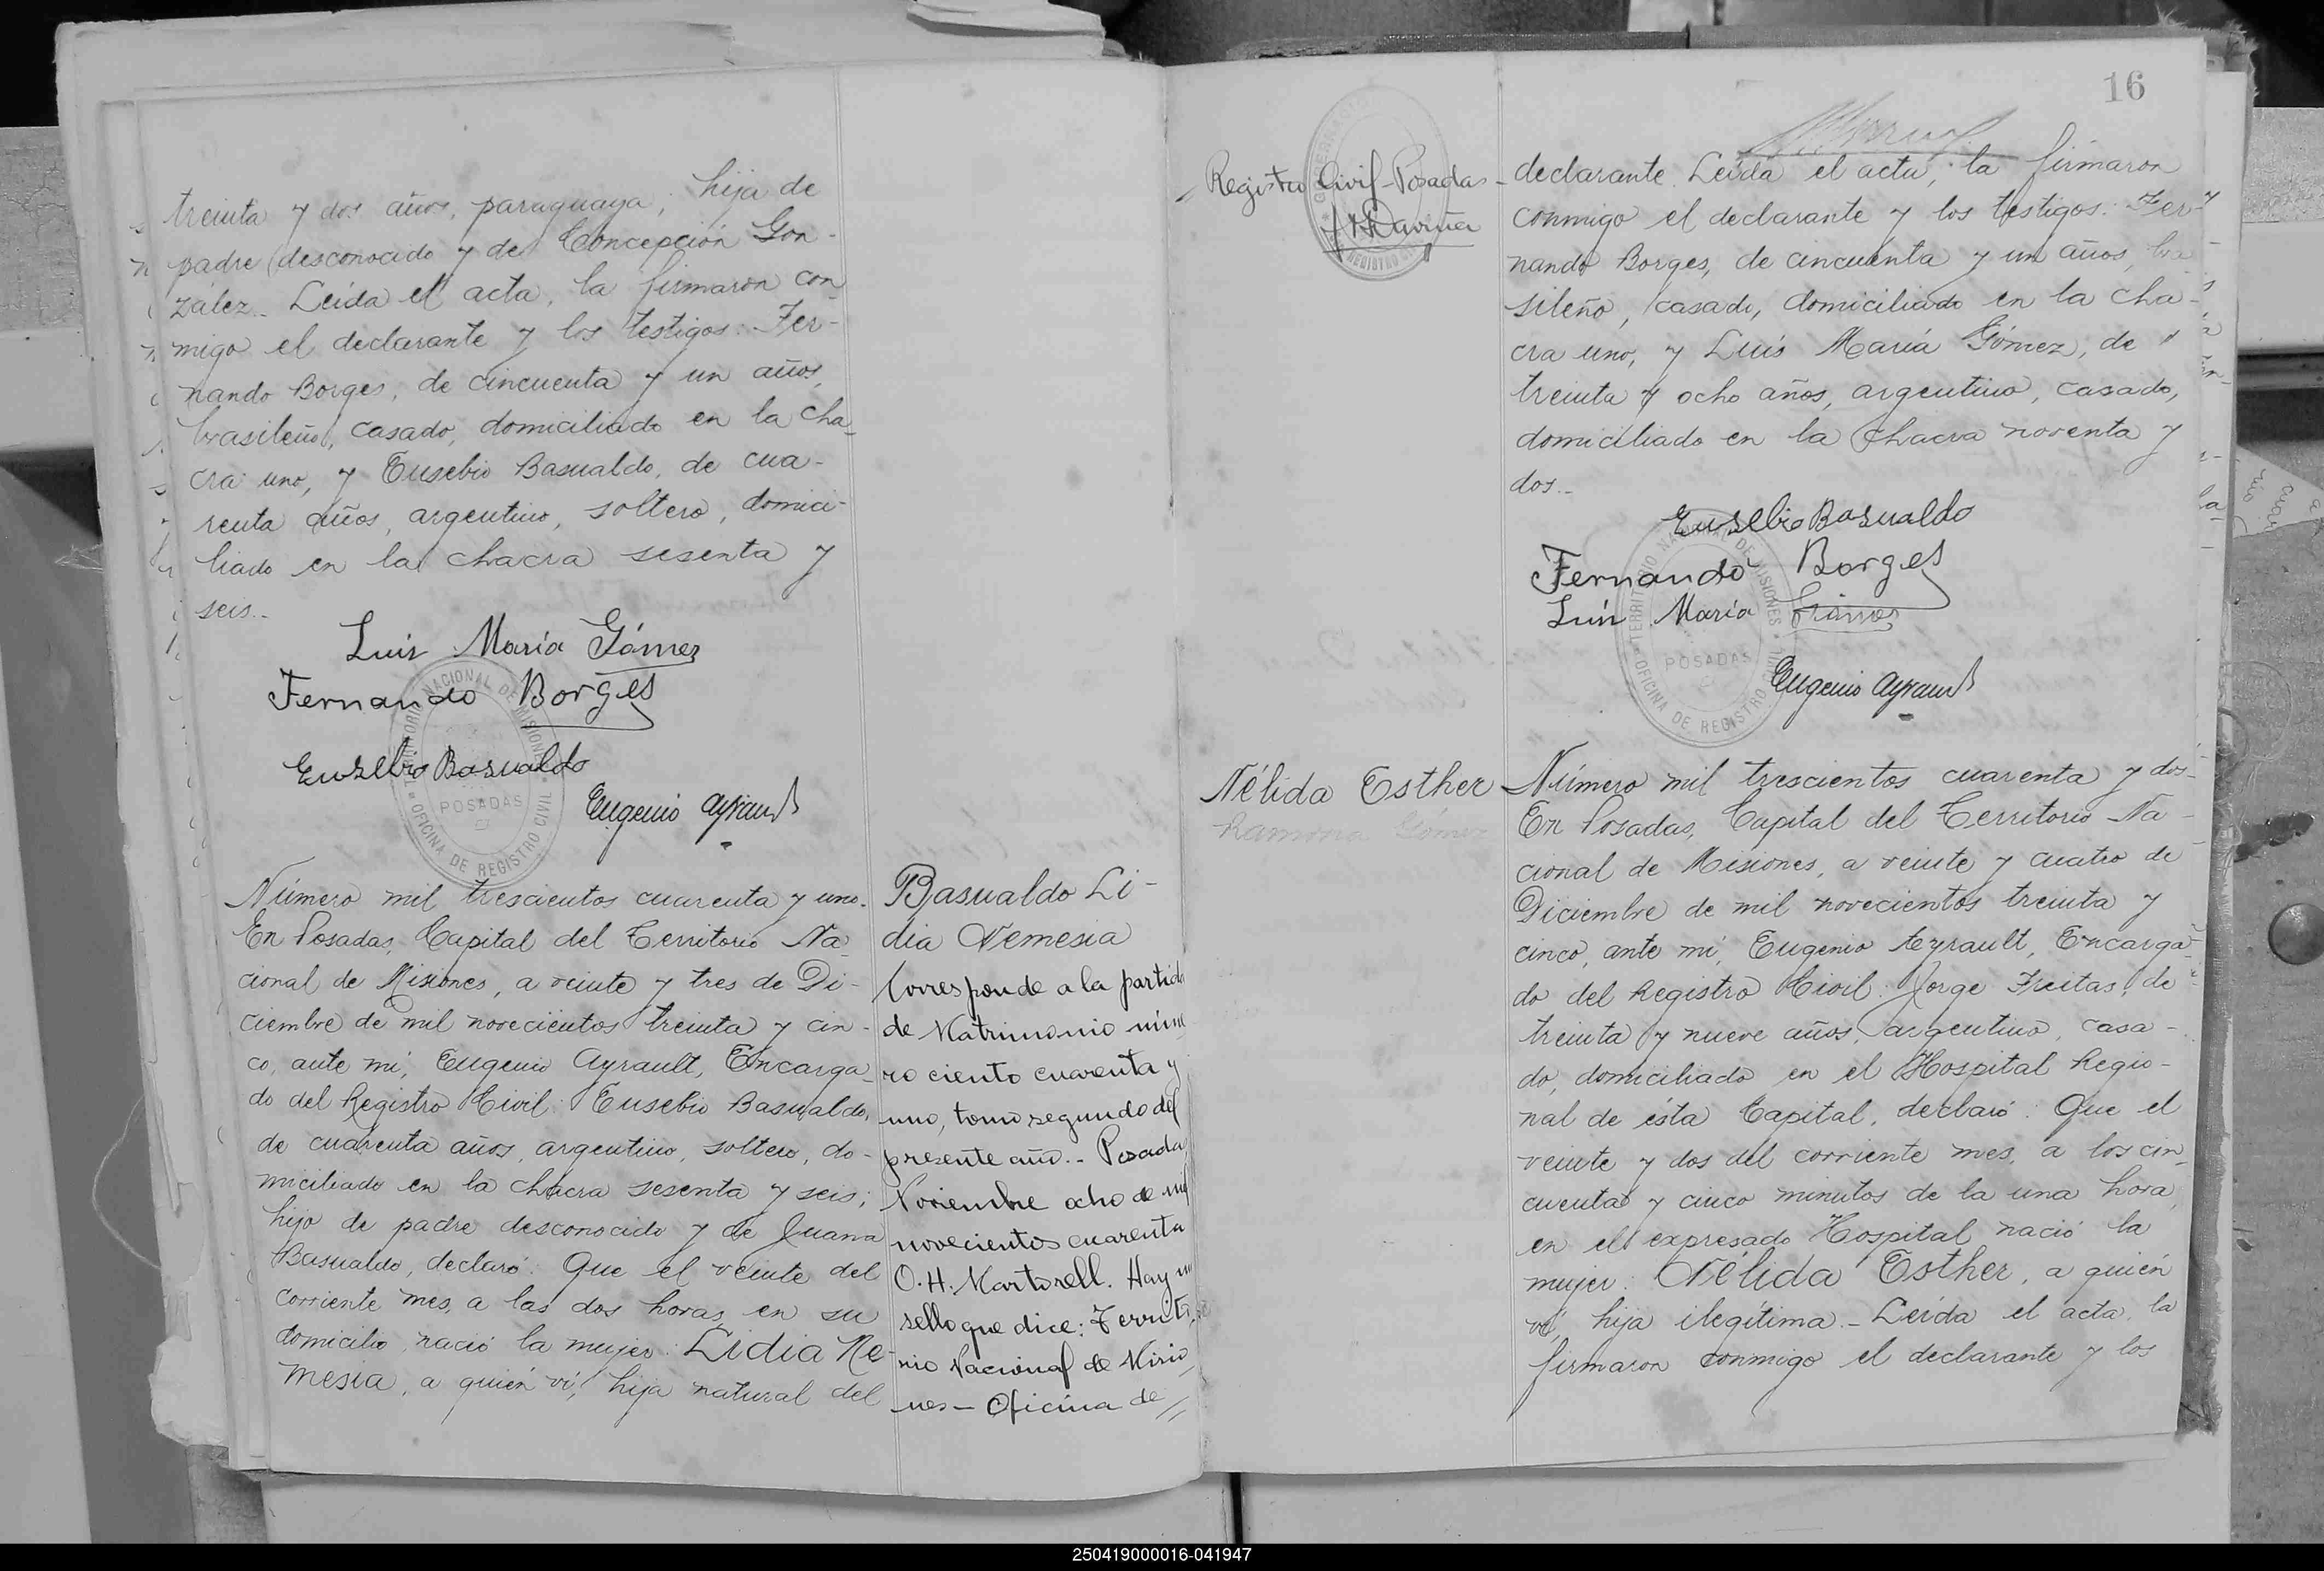 treinta y dos años, paraguaya; hija de
padre desconocido y de Concepción Gon-
zález.- Leída el acta, la firmaron con
migo el declarante y los testigos: Fer-
nando Borges, de cincuenta y un años,
brasileño, casado, domiciliado en la cha-
cra uno, y Eusebio Basualdo, de cua-
renta años, argentino, soltero, domici-
liado en la chacra sesenta y
seis.-
Luis María Gómez
Fernando Borges
Eusebio Basualdo
Eugenio Ayrault
TERRITORIO NACIONAL DE MISIONES
POSADAS
OFICINA DE REGISTRO CIVIL
Número mil trescientos cuarenta y uno.
En Posadas, Capital del Territorio Na-
cional de Misiones, a veinte y tres de Di-
ciembre de mil novecientos treinta y cin-
co, ante mi, Eugenio Ayrault, Encarga-
do del Registro Civil: Eusebio Basualdo,
de cuarenta años, argentino, soltero, do-
miciliado en la chacra sesenta y seis;
hijo de padre desconocido y de Juana
Basualdo, declaró: Que el veinte del
corriente mes, a las dos horas, en su
domicilio, nació la mujer: Lidia Ne-
mesia, a quién vi, hija natural del
Basualdo Li-
dia Nemesia
Corresponde a la partida
de Matrimonio núme
ro ciento cuarenta y
uno, tomo segundo del
presente año.- Posada
Noviembre ocho de mil
novecientos cuarenta
O. H. Martorell. Hay un
sello que dice: Territo
rio Nacional de Misio
nes - Oficina de //
16
Registro Civil - Posadas -
REGISTRO
declarante. Leída el acta, la firmaron
conmigo el declarante y los testigos: Fer-
nando Borges, de cincuenta y un años, bra
sileño, casado, domiciliado en la cha-
cra uno, y Luis María Gómez, de "
treinta y ocho años, argentino, casado,
domiciliado en la chacra noventa y
dos.-
Eusebio Basualdo
Fernando Borges
Luis María Gómez
Eugenio Ayrault
TERRITORIO NACIONAL DE MISIONES
POSADAS
OFICINA DE REGISTRO CIVIL
Nélida Esther
Ramona Gómez
Número mil trescientos cuarenta y dos-
En Posadas, Capital del Territorio Na-
cional de Misiones, a veinte y cuatro de
Diciembre de mil novecientos treinta y
cinco, ante mi, Eugenio Ayrault, Encarga-
do del Registro Civil: Jorge Freitas, de
treinta y nueve años, argentino, casa-
do, domiciliado en el Hospital Regio-
nal de ésta Capital, declaró: Que el
veinte y dos del corriente mes, a los cin-
cuenta y cinco minutos de la una hora,
en el expresado Hospital nació la
mujer: Nélida Esther, a quién
vi, hija ilegítima.- Leída el acta, la
firmaron conmigo el declarante y los
250419000016-041947